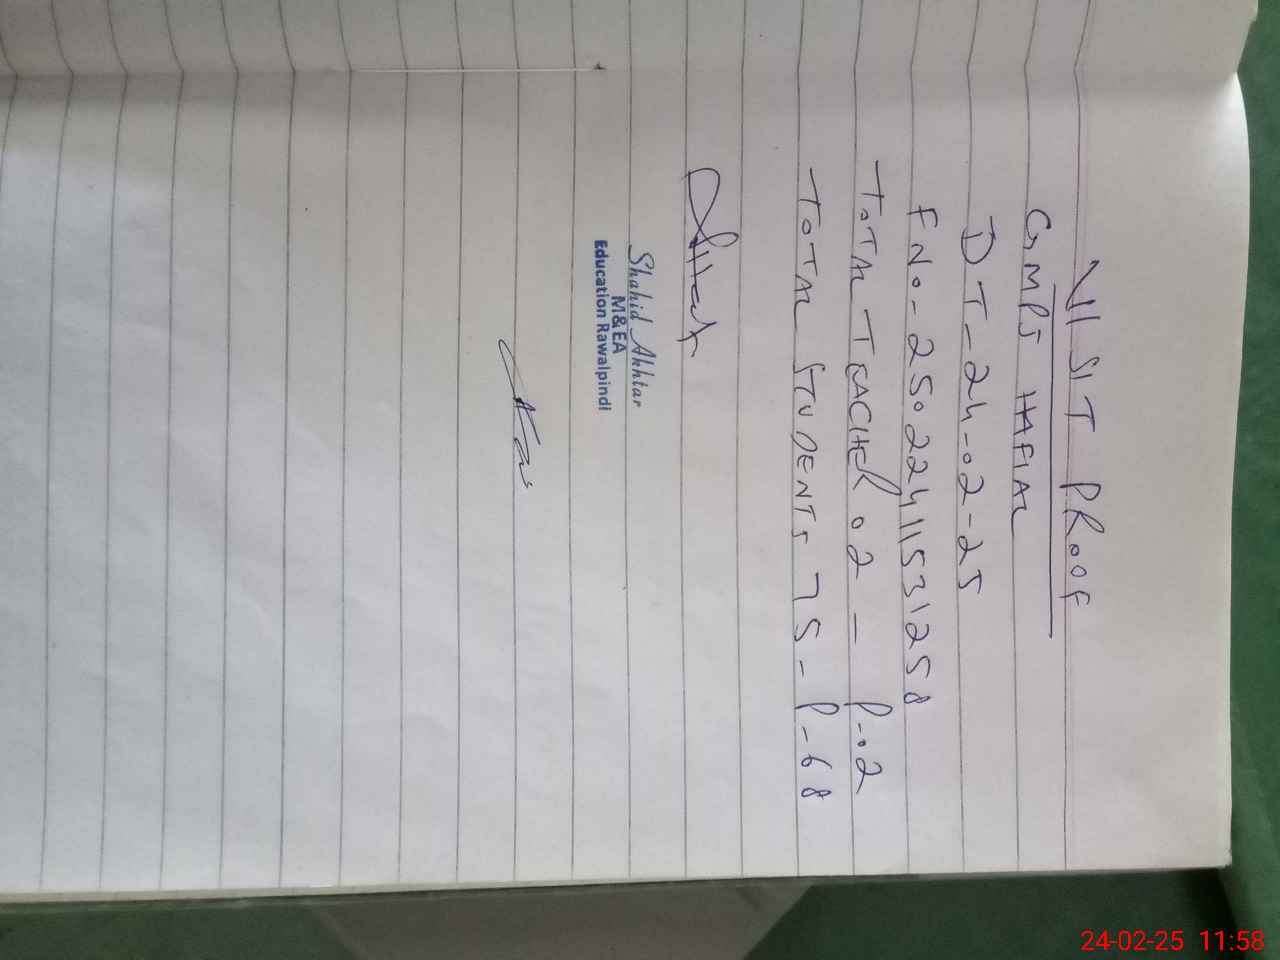 VISIT PROOF
GMPS HAFIAL
DT-24-02-25
FNo-25022411531258
TOTAL TEACHER 02 - P-02
TOTAL STUDENTS 75-P-68
Shahid Akhtar
M&EA
Education Rawalpindi
24-02-25 11:58